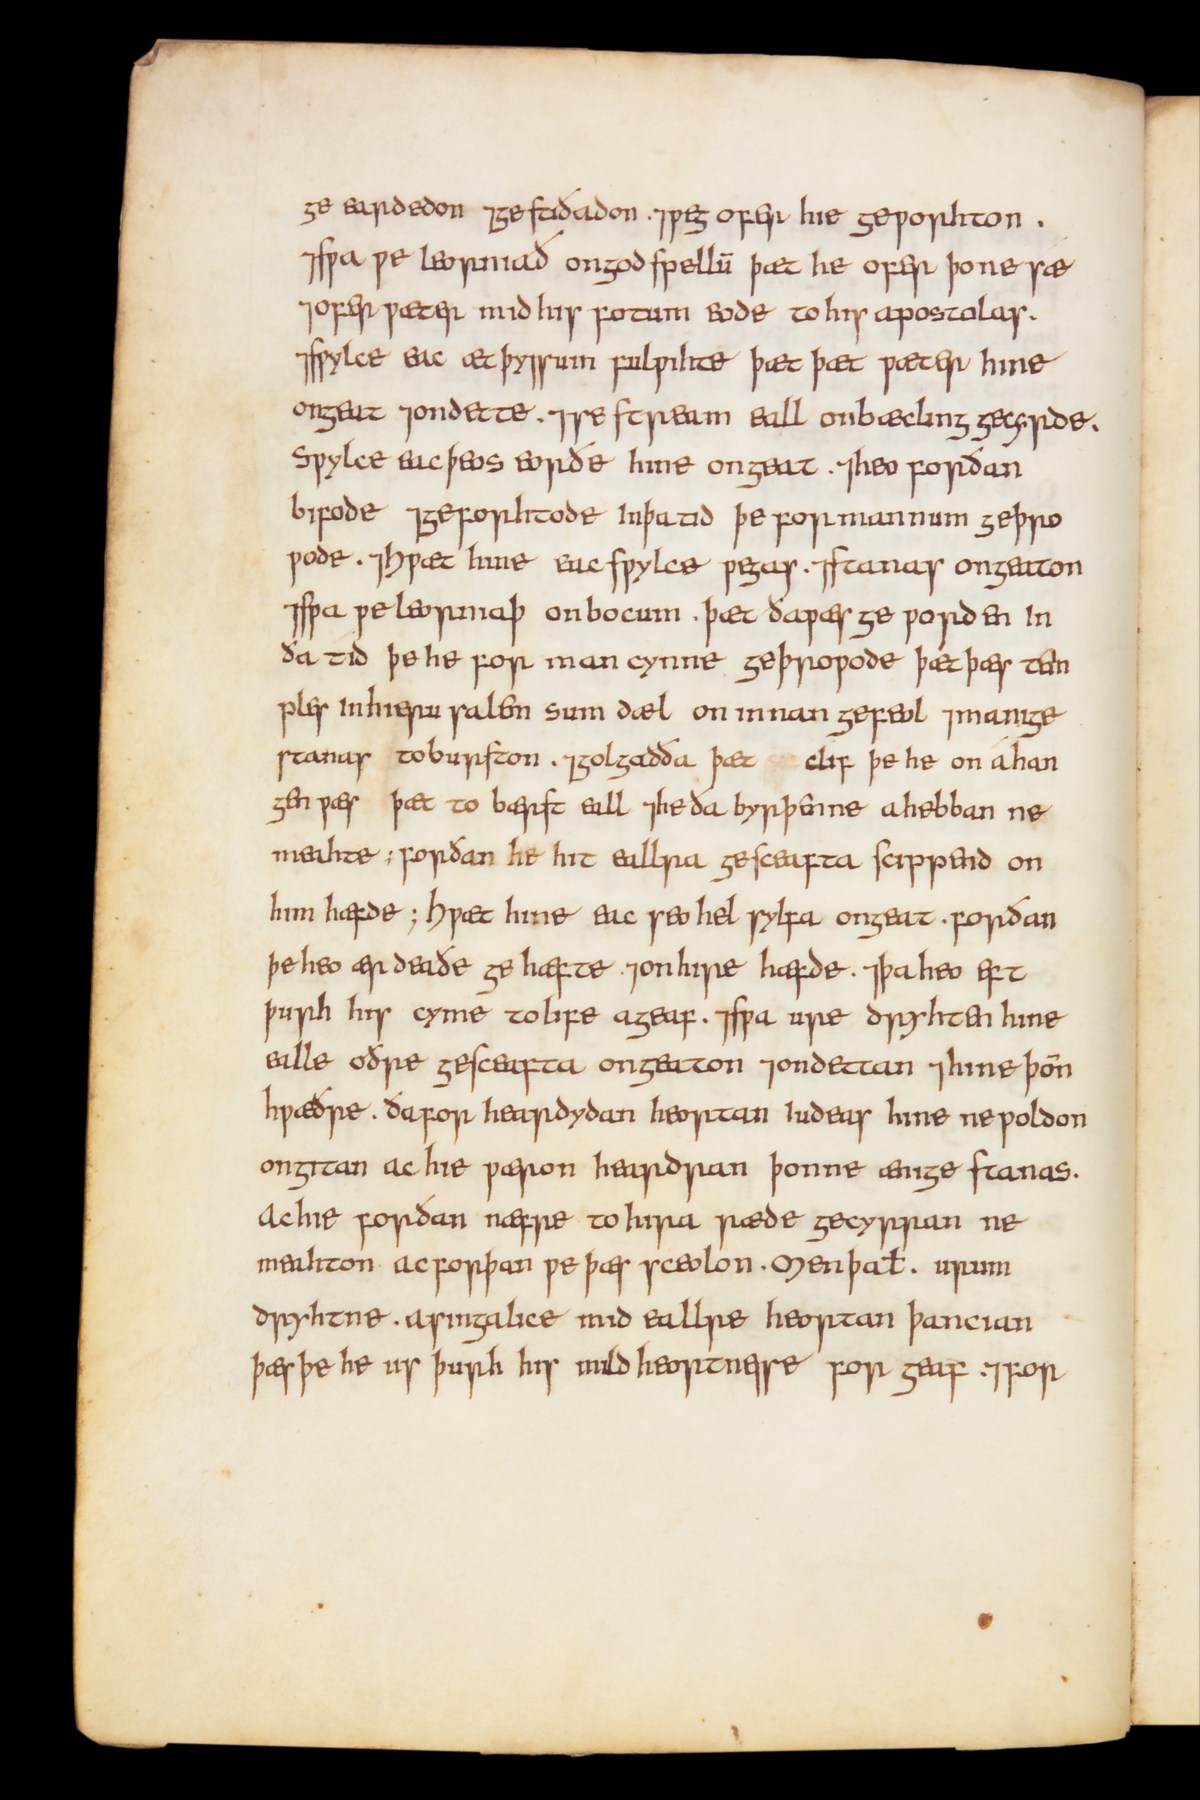 ge eardedon ⁊ge stiðadon . ⁊ƿeg ofer hie geƿorhton .
⁊sƿa ƿe leorniað ongodspellū þæt he ofer þone sæ
⁊ofer ƿæter mid his fotum eode to his apostolas .
⁊sƿylce eac æt þyssum fulƿihte þæt þæt ƿæter hine
ongeat ⁊ondette . ⁊se stream eall onbæcling gecyrde .
Sƿylce eac þeos eorðe hine ongeat . ⁊heo forðan
bifode ⁊geforhtode inþa tid þe for mannum geþro
ƿode . ⁊hƿæt hine eac sƿylce ƿegas . ⁊stanas ongeaton
⁊sƿa ƿe leorniaþ on bocum . þæt ðaƿæs ge ƿorden in
ða tid þe he for man cynne geþroƿode þæt þæs tem
ples in hierusalem sum dæl on innan gefeol ⁊manige
stanas toburston . ⁊golgaðða þæt clif þe he on áhan
gen ƿæs þæt to bærst eall ⁊he ða byrþenne ahebban ne
meahte ; forðan he hit eallra gesceafta scippend on
him hæfde ; Hƿæt hine eac seo hel sylfa ongeat . forðan
þe heo ær deaðe ge hæfte . ⁊on hire hæfde . ⁊þa heo eft
þurh his cyme to life ageaf . ⁊sƿa ure dryhten hine
ealle oðre gesceafta ongeaton ⁊ondettan ⁊hine þoñ
hƿæðre . ða for heardydan heortan iudeas hine ne ƿoldon
ongitan ac hie ƿæron heardran þonne ænige stanas .
Ac hie forðan næfre to hira ræde gecyrran ne
meahton ac forþan ƿe þæs sceolon . Men þa ł . urum
dryhtne . asingalice mid eallre heortan þancian
þæs þe he us þurh his mildheortnesse for geaf . ⁊ for